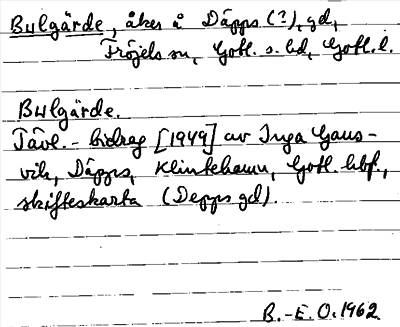 Bulgärde, åker å Däpps (?), gd,
Fröjels sn, Gotl. s. hd, Gotl. l.
Bulgärde.
Tävl.-bidrag [1949] av Inga Gans-
vik, Däpps, Klintehamn, Gotl. hbf.,
skifteskarta (Depps gd).
B.-E. O. 1962